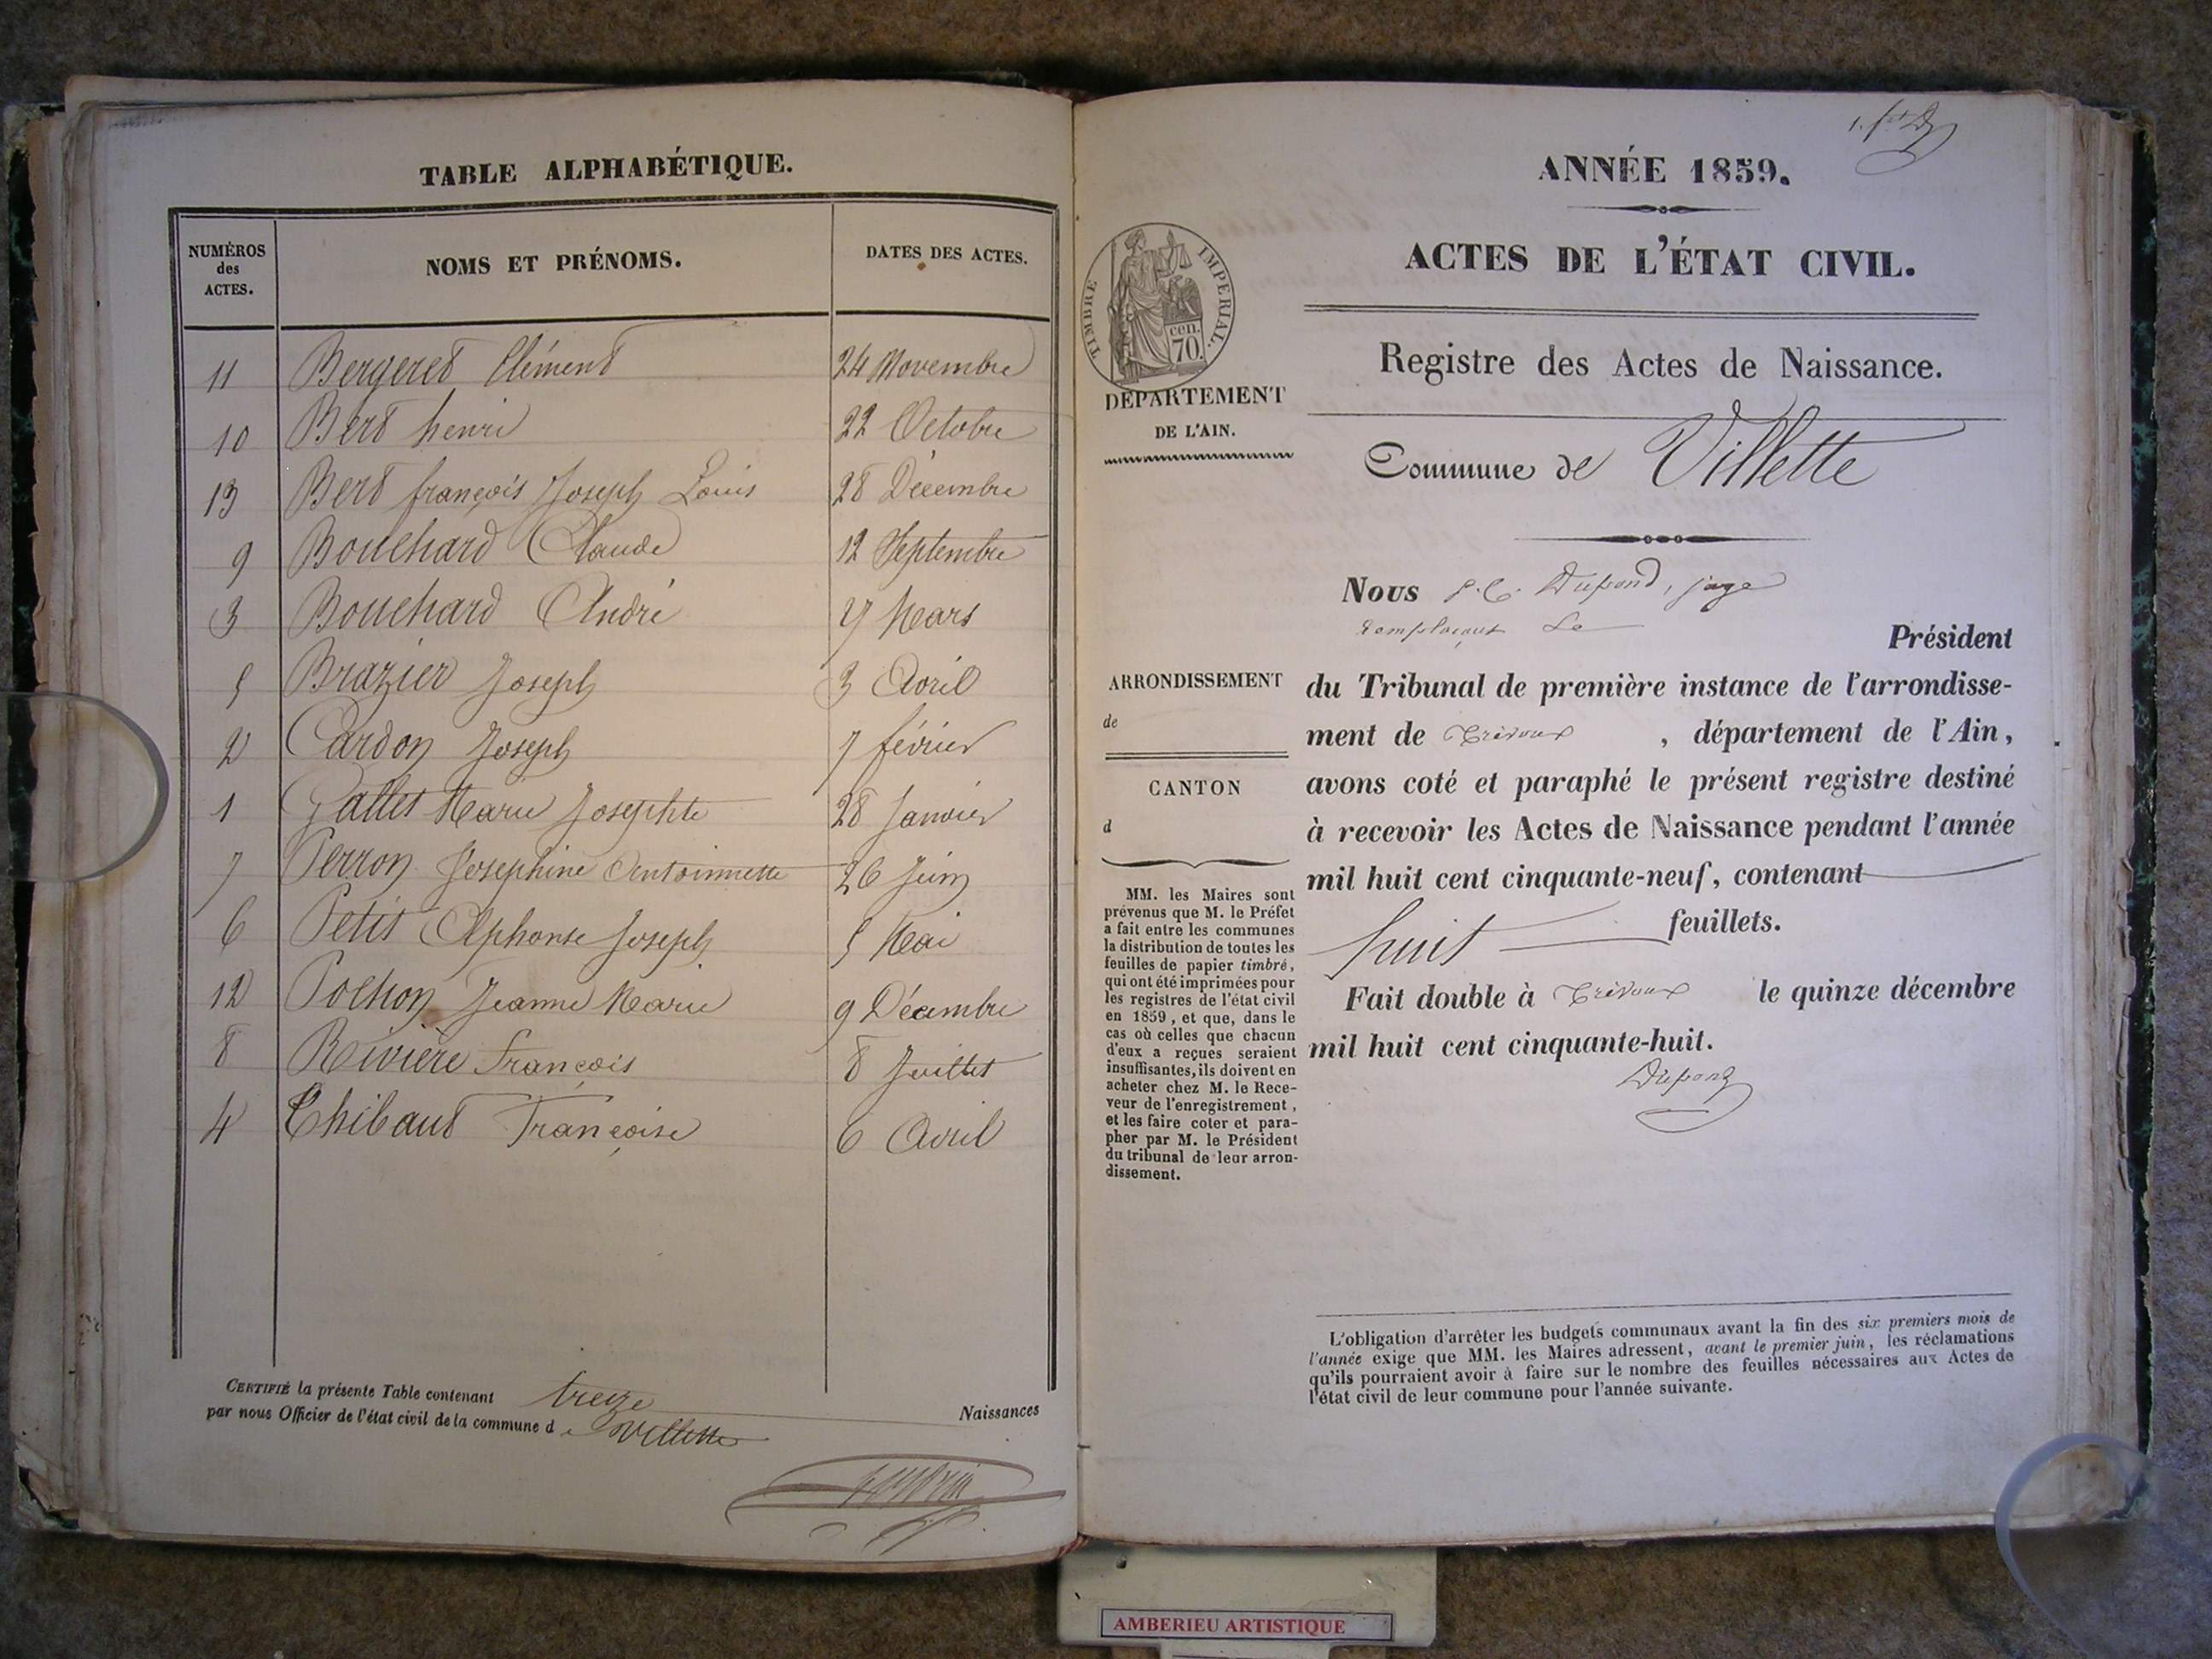 TABLE ALPHABÉTIQUE.
NUMÉROS
des
ACTES.
NOMS ET PRÉNOMS.
DATES DES ACTES.
11 Bergeret Clément 24 Novembre
10 Bert henri 22 Octobre
13 Bert françois Joseph Louis 28 Décembre
9 Bouchard Claude 12 Septembre
3 Bouchard André 27 Mars
5 Brazier Joseph 3 Avril
2 Cardon Joseph 7 février
1 Gallet Marie Josephte 28 Janvier
7 Perron Josephine Antoinnette 26 Juin
6 Petit Alphonse Joseph 5 Mai
12 Pochon Jeanne Marie 9 Décembre
8 Rivière François 8 Juillet
4 Thibaut Françoise 6 Avril
CERTIFIÉ la présente Table contenant treize Naissances
par nous Officier de l'état civil de la commune d e Villette
ANNÉE 1859.
ACTES DE L'ÉTAT CIVIL.
TIMBRE IMPERIAL.
cen.
70.
DÉPARTEMENT
DE L'AIN.
Registre des Actes de Naissance.
Commune de Villette
Nous P. C. Dupond, juge
remplaçant Le
Président
du Tribunal de première instance de l'arrondisse-
ment de Trévoux, département de l'Ain,
avons coté et paraphé le présent registre destiné
à recevoir les Actes de Naissance pendant l'année
mil huit cent cinquante-neuf, contenant
huit feuillets.
Fait double à Trévoux le quinze décembre
mil huit cent cinquante-huit.
Dupond
ARRONDISSEMENT
de
CANTON
d
MM. les Maires sont
prévenus que M. le Préfet
a fait entre les communes
la distribution de toutes les
feuilles de papier timbré,
qui ont été imprimées pour
les registres de l'état civil
en 1859, et que, dans le
cas où celles que chacun
d'eux a reçues seraient
insuffisantes, ils doivent en
acheter chez M. le Rece-
veur de l'enregistrement,
et les faire coter et para-
pher par M. le Président
du tribunal de leur arron-
dissement.
L'obligation d'arrêter les budgets communaux avant la fin des six premiers mois de
l'année exige que MM. les Maires adressent, avant le premier juin, les réclamations
qu'ils pourraient avoir à faire sur le nombre des feuilles nécessaires aux Actes de
l'état civil de leur commune pour l'année suivante.
AMBERIEU ARTISTIQUE